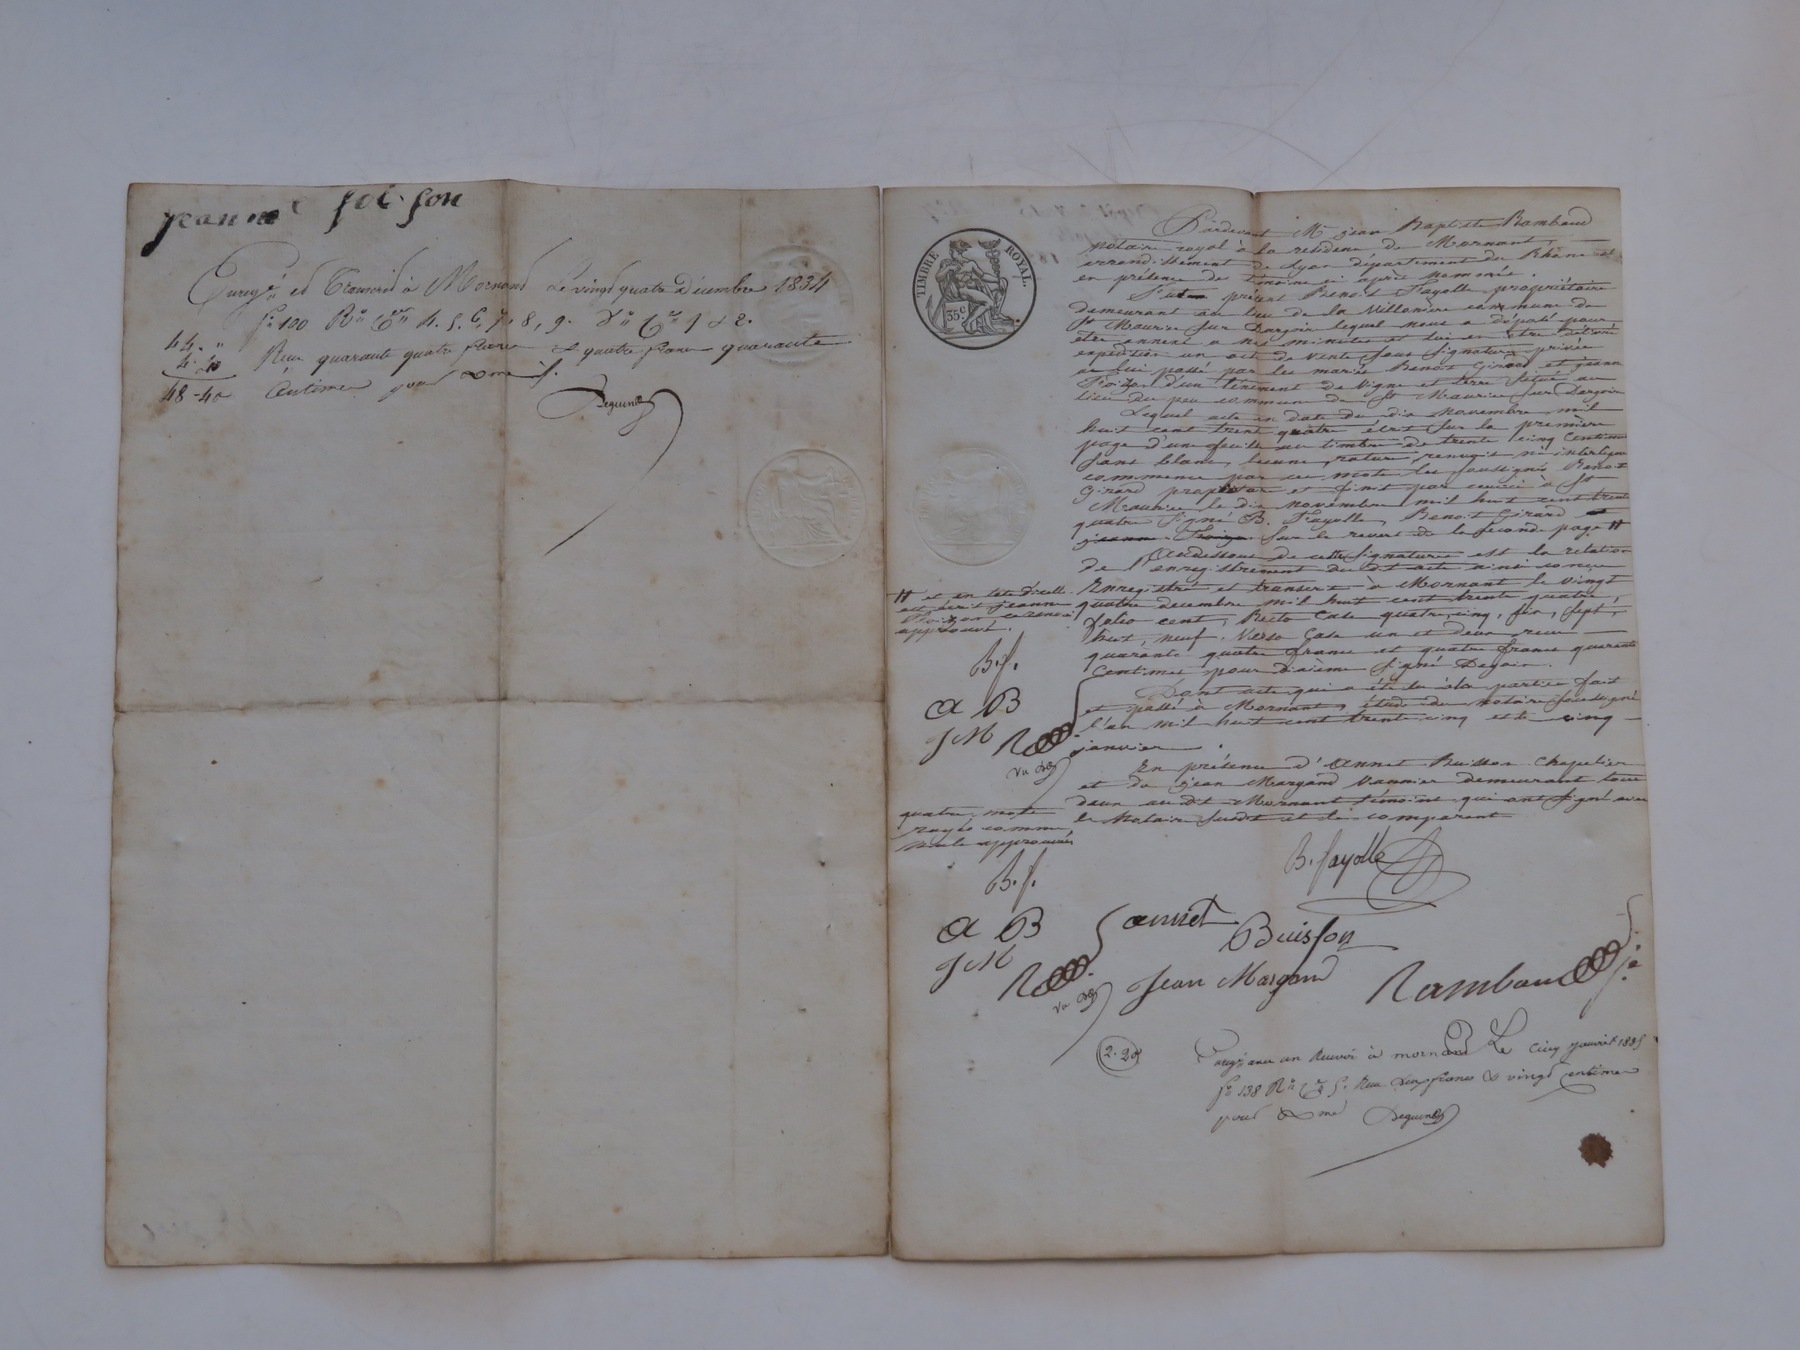 jeanne foi-son
Enregé et Transcrit à Mornand le vingt quatre décembre 1834
fo 100 Ro Cses 4. 5. 6, 7, 8, 9. Vo Cses 1 et 2.
44. "
Reçu quarante quatre francs et quatre francs quarante
4. 40
48-40
centimes pour
Deguin
TIMBRE ROYAL.
35c
Pardevant Me jean Baptiste Rambaud
notaire royal à la residence de Mornant
arrondissement de Lyon département du Rhône et
en présence de témoins ci après nommés.
fut présent Benoit Fayolle propriétaire
demeurant au lieu de la Villonière commune de
St Maurice sur Dargoir lequel nous a déposé pour
être annexé a nos minutes et lui en être délivré
expédition un acte de vente sous signature privée
a lui passé par les mariés Benoit Girard et jeanne
Foizon d'un tènement de vigne et terre situé au
lieu du peu commune de St Maurice sur Dargoir
Lequel acte en date du dix novembre mil
huit cent trente quatre écrit sur la première
page d'une feuille au timbre de trente cinq centimes
sans blanc, lacune, rature, renvois ni interligne
commence par ces mots les soussignés Benoit
Girard propriétaire et finit par ceux ci à St
Maurice le dix novembre mil huit cent trente
quatre signé B. Fayolle, Benoit Girard et
jeanne Foizon sur le revers de la seconde page #
Audessous de cette signature est la relation
de l'enregistrement du dit acte ainsi conçue
Enregistré et transcrit à Mornant le vingt
# et en tête d'icelle
est écrit jeanne
Foizon ce renvoi
approuvé.
quatre decembre mil huit cent trente quatre,
folio cent, Recto Case quatre, cinq, six, sept,
huit, neuf, verso Case un et deux reçu
quarante quatre francs et quatre francs quarante
centimes pour dixième signé Deguin.
B. f.
a B
J M R
Dont acte qui a été lu à la partie fait
et passé à Mornant, étude du notaire soussigné
l'an mil huit cent trente cinq et le cinq
janvier.
En présence d'Annet Buisson Chapelier
et de jean Margand Vannier demeurant tous
deux audit Mornant témoins qui ont signé avec
le Notaire susdit et le comparant
quatre mots
rayés comme
nuls approuvés
B. f.
a B
J M
R
B. fayolle
annet Buisson
Jean Margand
Rambaud
2.20
Enregé avec un Renvoi à mornand Le cinq janvier 1835
fo 138 Ro Ce 5. Reçu deux francs & vingt centimes
pour Deguin